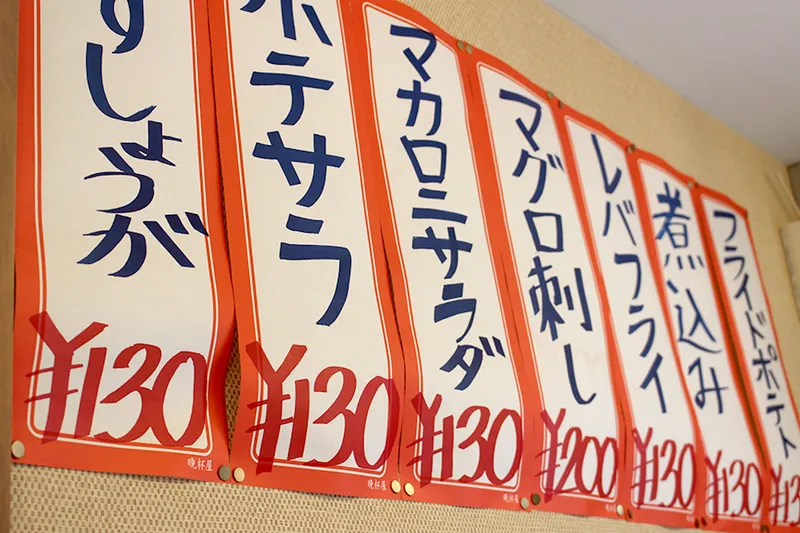 すしょうが
¥130
晩杯屋
ポテサラ
¥130
晩杯屋
マカロニサラダ
¥130
晩杯屋
マグロ刺し
¥200
レバフライ
¥130
煮込み
¥130
フライドポテト
¥13